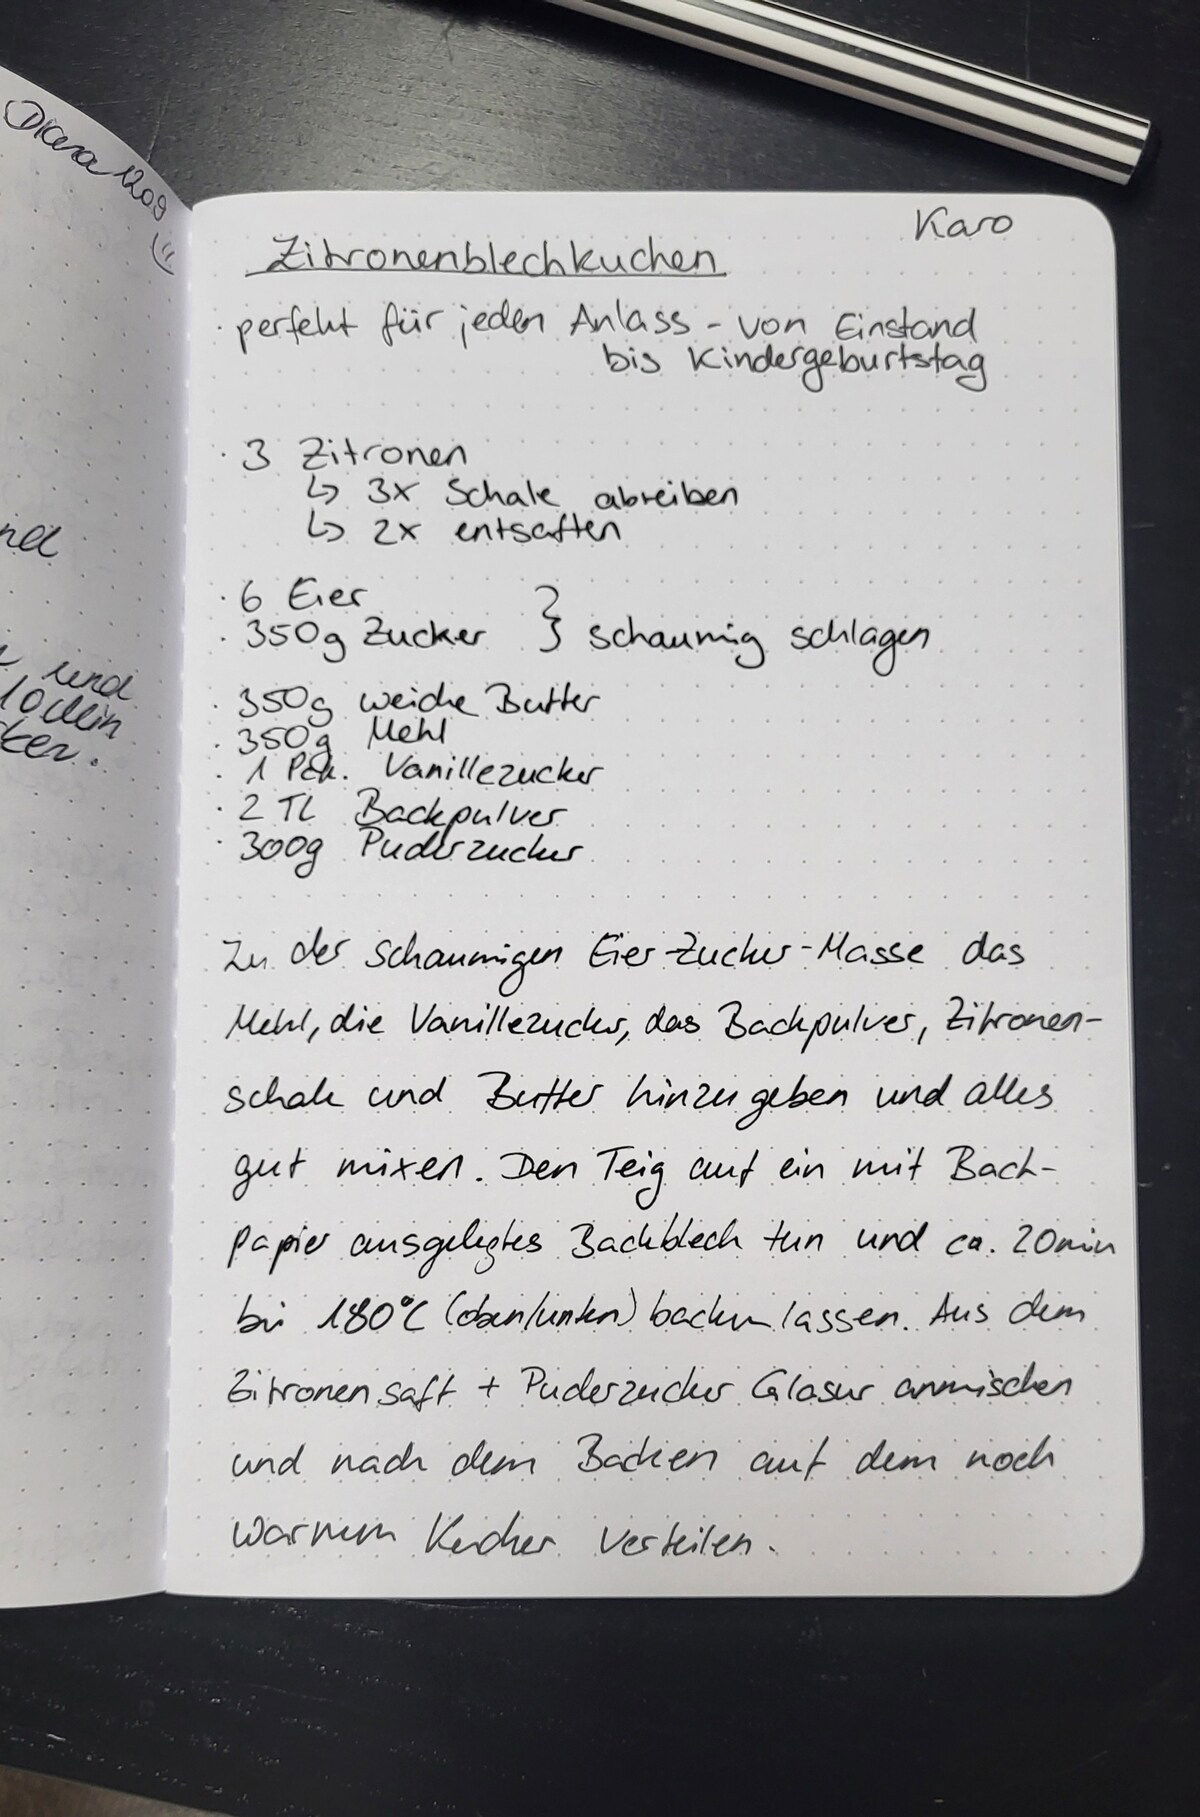 Diana1209
nd
und
10 Min
ken.
Karo
Zitronenblechkuchen
· perfekt für jeden Anlass - von Einstand
bis Kindergeburtstag
· 3 Zitronen
↳ 3x Schale abreiben
↳ 2x entsaften
· 6 Eier }
· 350g Zucker } schaumig schlagen
· 350g weiche Butter
· 350g Mehl
· 1 Pck. Vanillezucker
· 2 TL Backpulver
· 300g Puderzucker
Zu der schaumigen Eier-Zucker-Masse das
Mehl, die Vanillezucker, das Backpulver, Zitronen-
schale und Butter hinzugeben und alles
gut mixen. Den Teig auf ein mit Back-
papier ausgelegtes Backblech tun und ca. 20min
bei 180°C (oben/unten) backen lassen. Aus dem
Zitronensaft + Puderzucker Glasur anmischen
und nach dem Backen auf dem noch
warmen Kuchen verteilen.